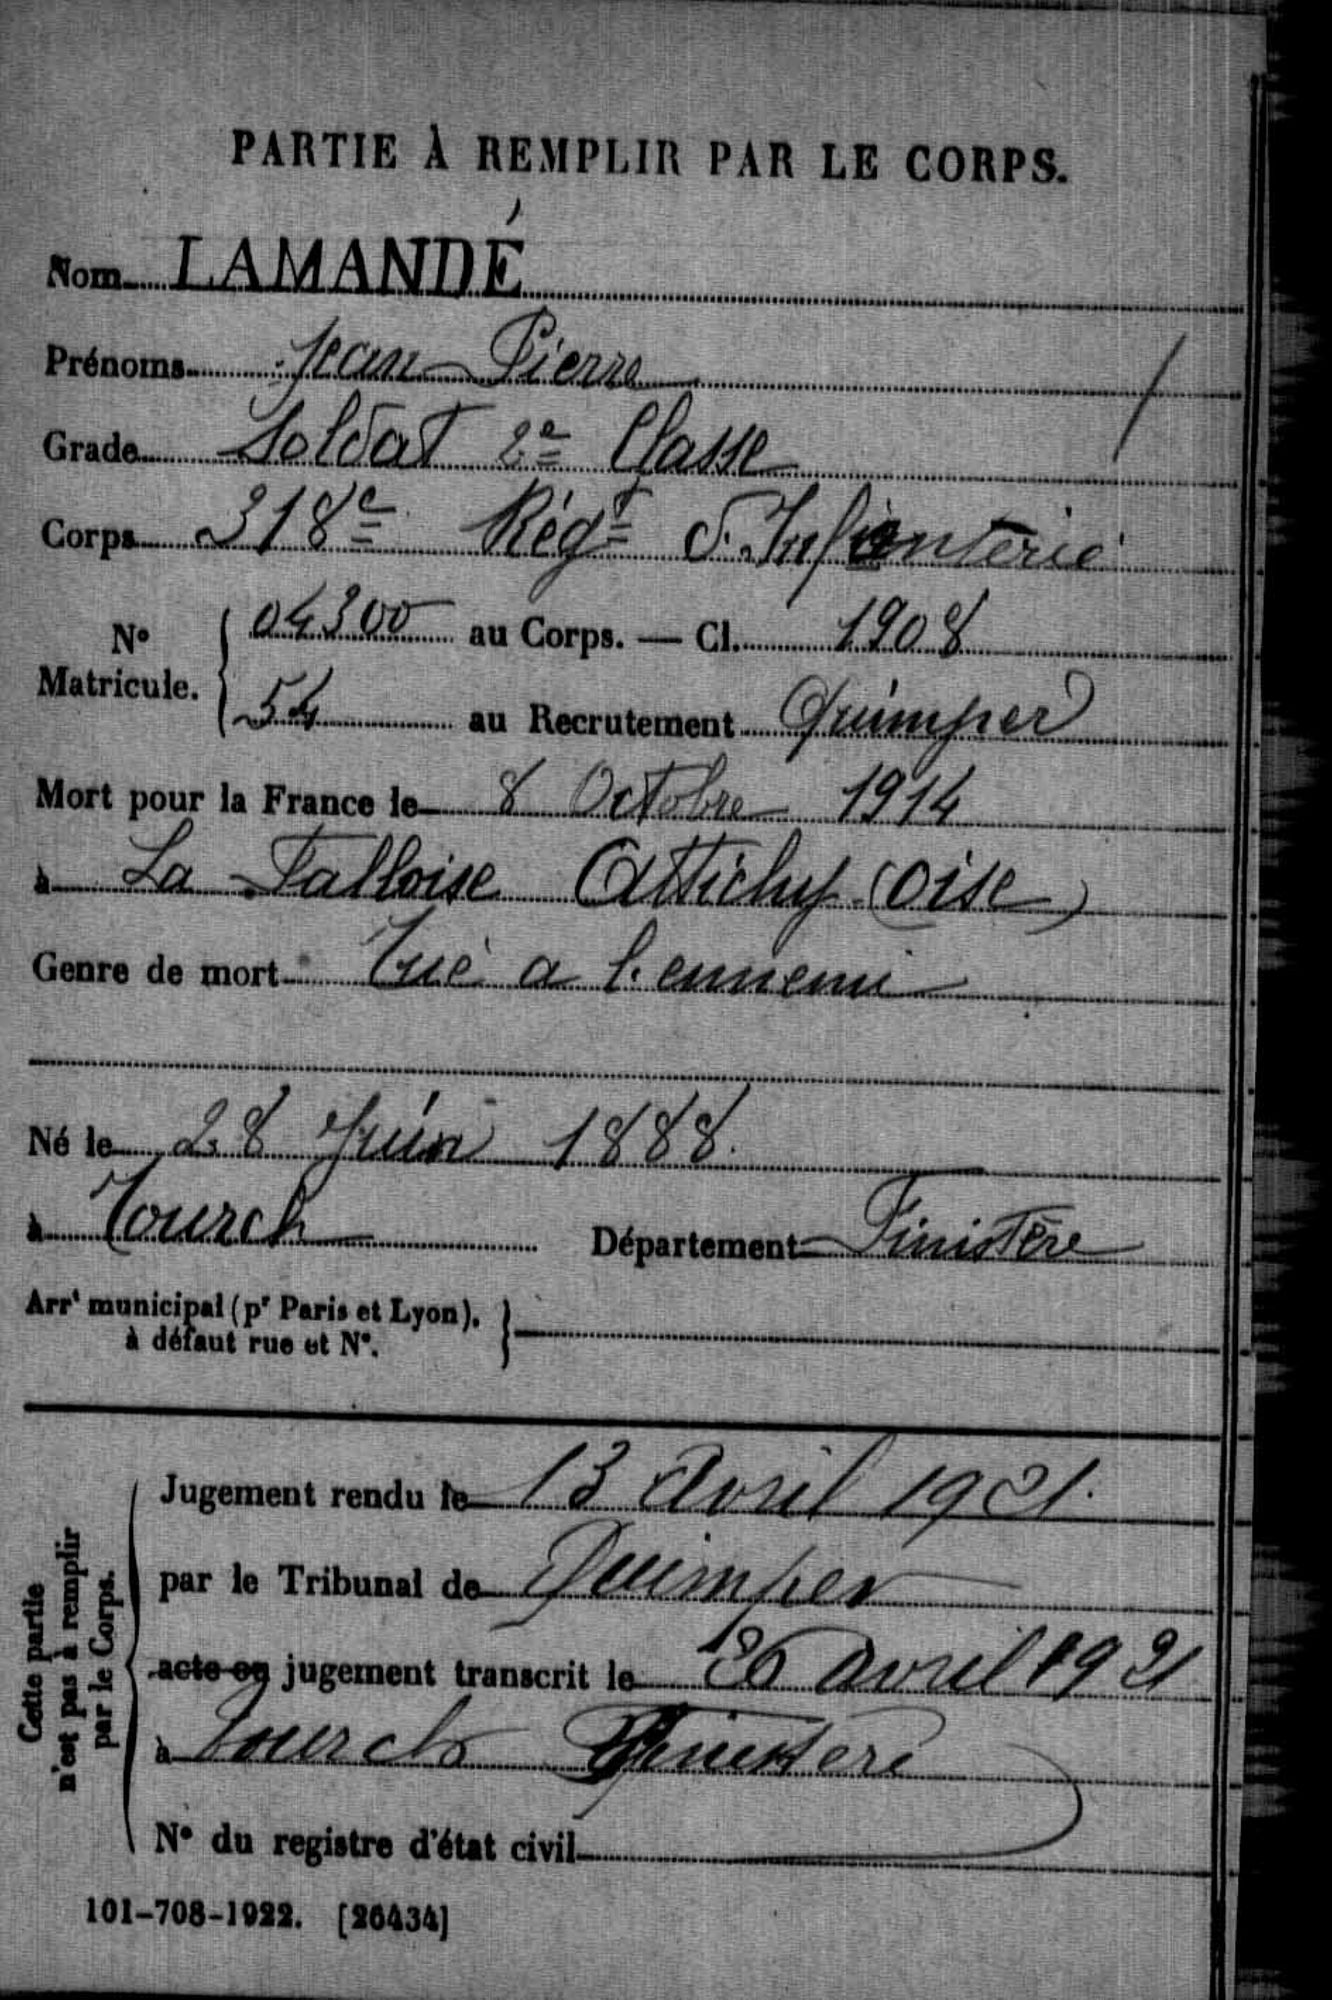 PARTIE À REMPLIR PAR LE CORPS.
Nom LAMANDÉ
Prénoms Jean Pierre
Grade Soldat 2e Classe
Corps 318e Régt d'Infanterie
No Matricule. { 04300 au Corps. — Cl. 1908
54 au Recrutement Quimper
Mort pour la France le 8 Octobre 1914
à La Falloise Attichy (Oise)
Genre de mort Tué a l'ennemi
Né le 28 Juin 1888.
à Tourch Département Finistère
Arrt municipal (pr Paris et Lyon),
à défaut rue et No. }
Cette partie
n'est pas à remplir
par le Corps.
Jugement rendu le 13 Avril 1921.
par le Tribunal de Quimper
acte ou jugement transcrit le 26 Avril 1921
à Tourch Finistère
No du registre d'état civil
101-708-1922. [26434]